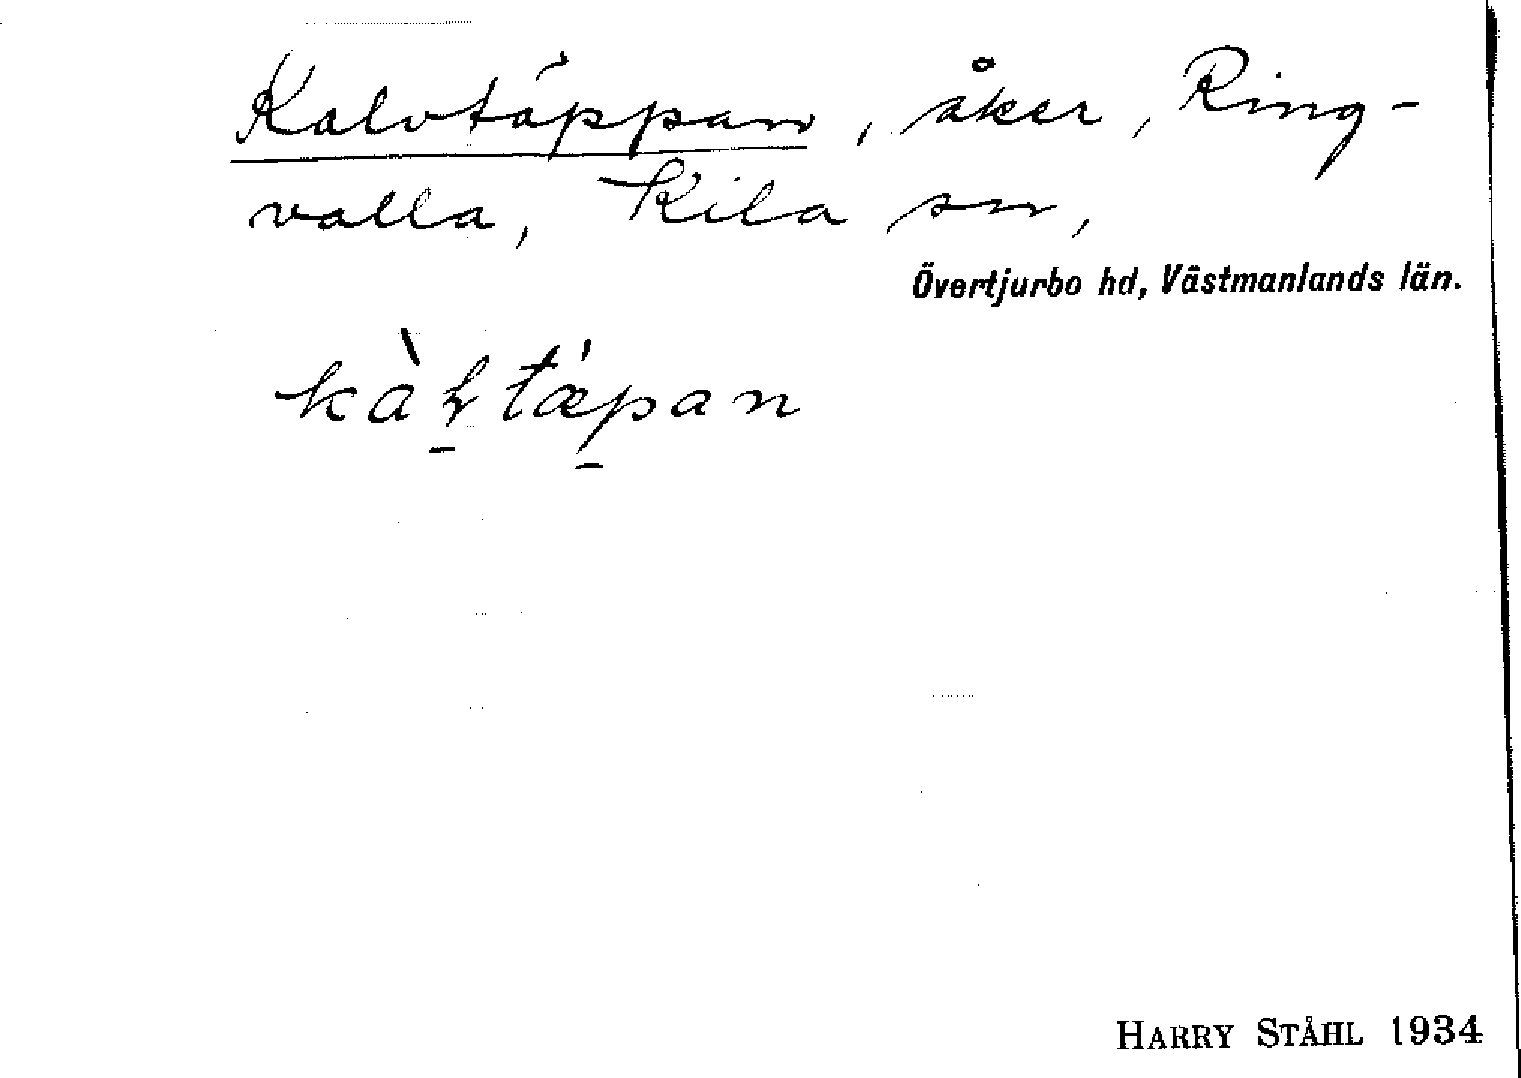 Kalvtäppan, åker, Ring-
valla, Kila sn,
Övertjurbo hd, Västmanlands län.
HARRY STÅHL 1934